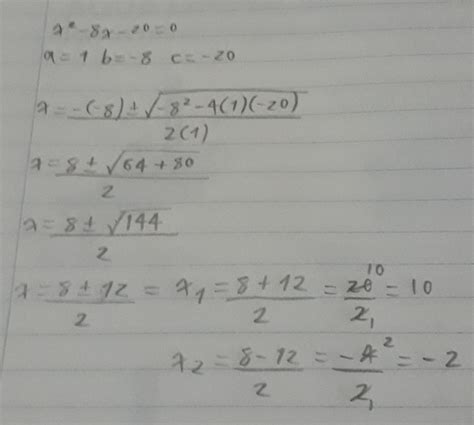 x² - 8x - 20 = 0
a = 1 b = -8 c = -20
x = -(-8) ± √-8² - 4(1)(-20) / 2(1)
x = 8 ± √64 + 80 / 2
x = 8 ± √144 / 2
x = 8 ± 12 / 2 = x₁ = 8 + 12 / 2 = 20 10 / 2 1 = 10
x₂ = 8 - 12 / 2 = -4 2 / 2 1 = -2